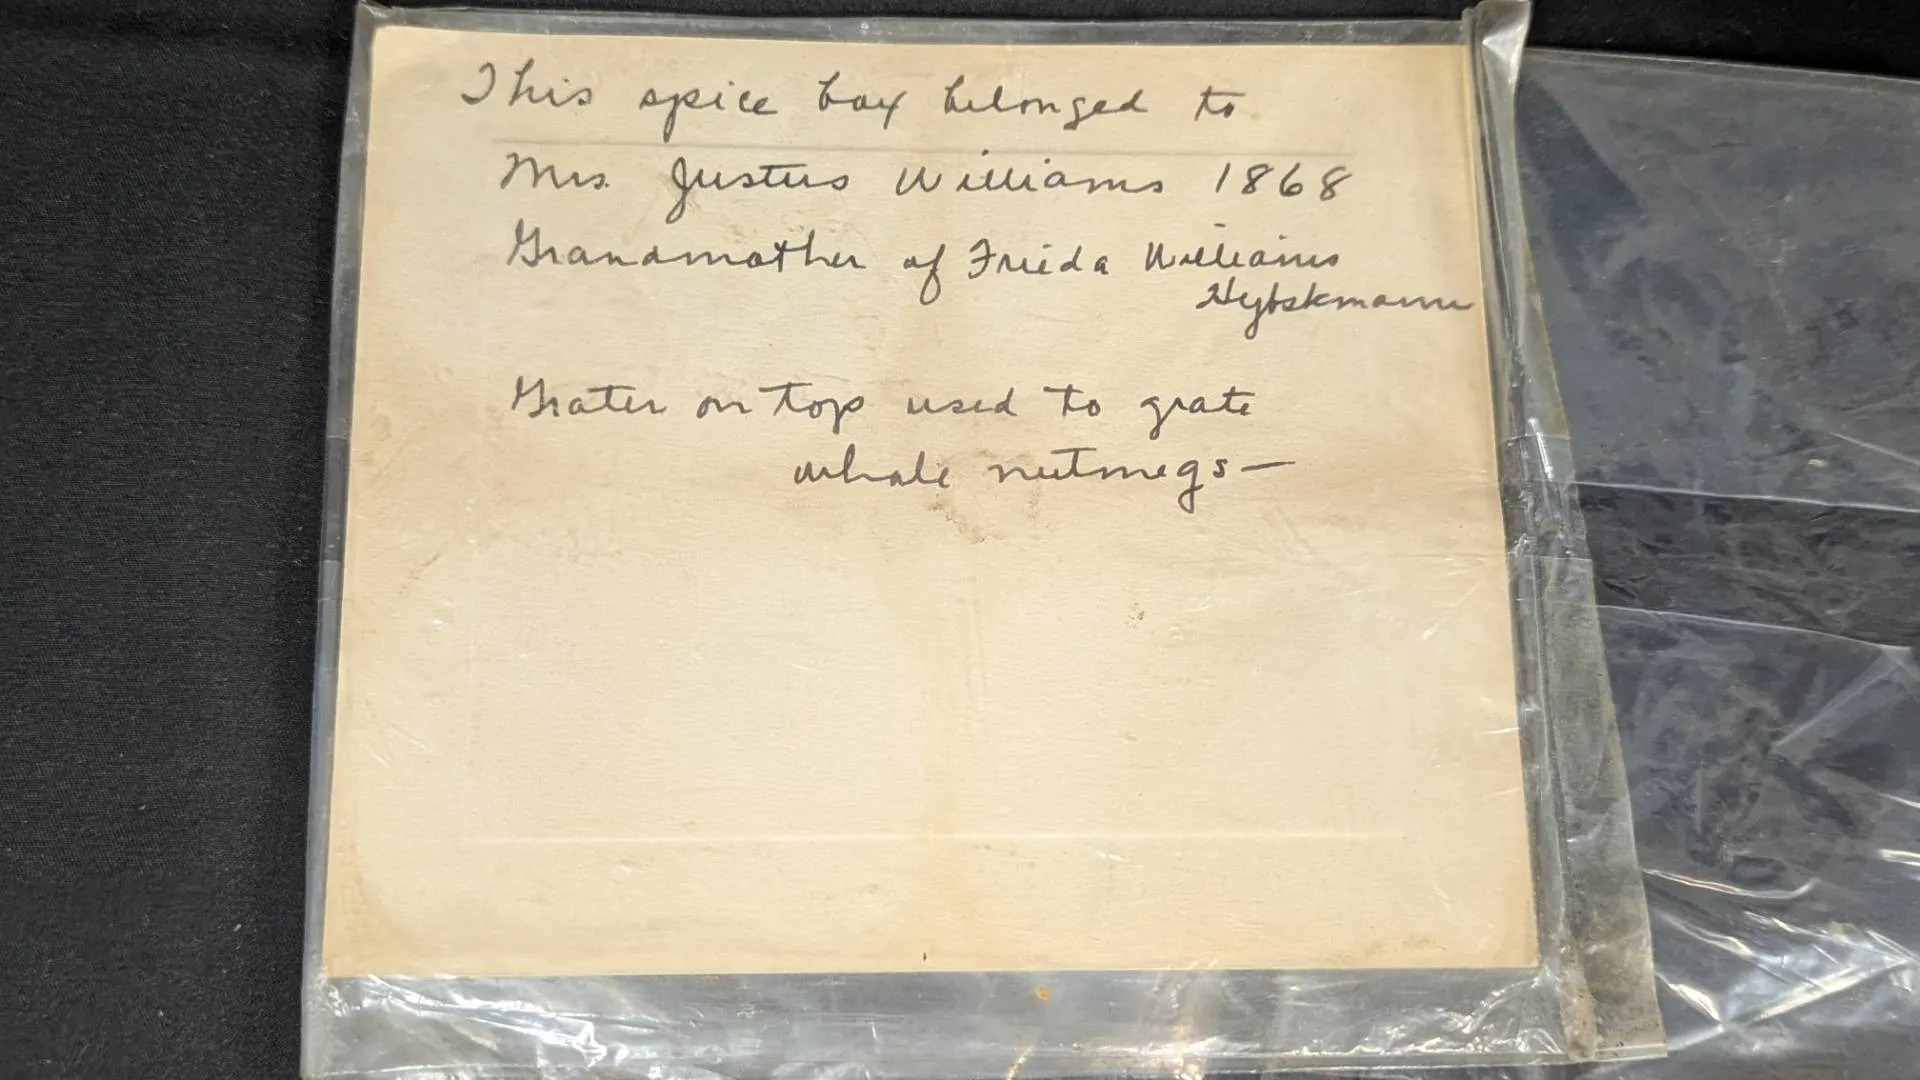 This spice box belonged to
Mrs. Justus Williams 1868
Grandmother of Frieda Williams
Grater on top used to grate
whole nutmegs—